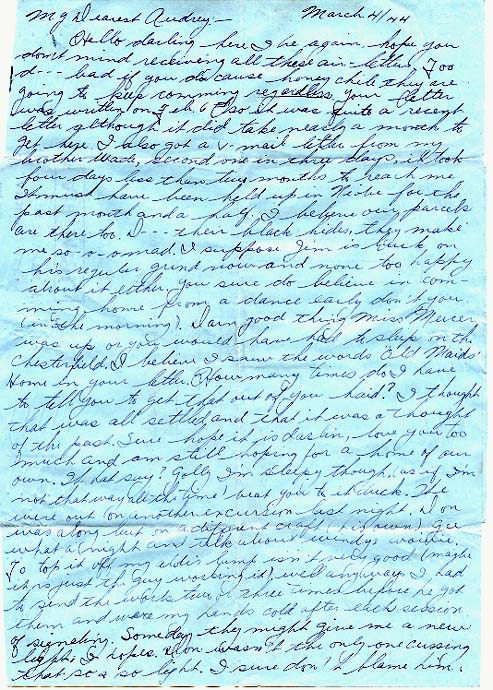 My Dearest Audrey— March 4/44
Hello darling here I be again, hope you
don't mind receiving all these air-letters, Too
d--- bad if you do cause honey chile they are
going to keep comming regardless. Your letter
was written on Feb. 6 so it was quite a recent
letter although it did take nearly a month to
get here. I also got a v-mail letter from my
brother Wade, second one in three days, it took
four days less than two months to reach me
It must have been held up in for the
past month and a half, I believe our parcels
are there too. D--- their black hides, they make
me so-o-o mad. I suppose Jim is back on
his regular grind now and none too happy
about it either. You sure do believe in com-
ming home from a dance early don't you
(in the morning). Darn good thing Miss Mercer
was up or you would have had to sleep on the
chesterfield. I believe I saw the words Old Maids'
Home in your letter. How many times do I have
to tell you to get that out of you haid? I thought
that was all settled and that it was a thought
of the past. Sure hope it is darlin, love you too
much and am still hoping for a home of our
own. What say? Golly I'm sleepy though, as if I'm
not that way all the time) beat you to it duck. The
were out on another excursion last night. Don
was along but on a different craft (his own) Gee
what a night and talk about windy,
To top it off my aldis lamp isn't very good (maybe
it is just the guy working it) well anyways I had
to send the works two or three times before he got
them and were my hands cold after each session
of signaling. Someday they might give me a new
light, I hopes. Don wasn't the only one cussing
that so & so light. I sure don't blame him.